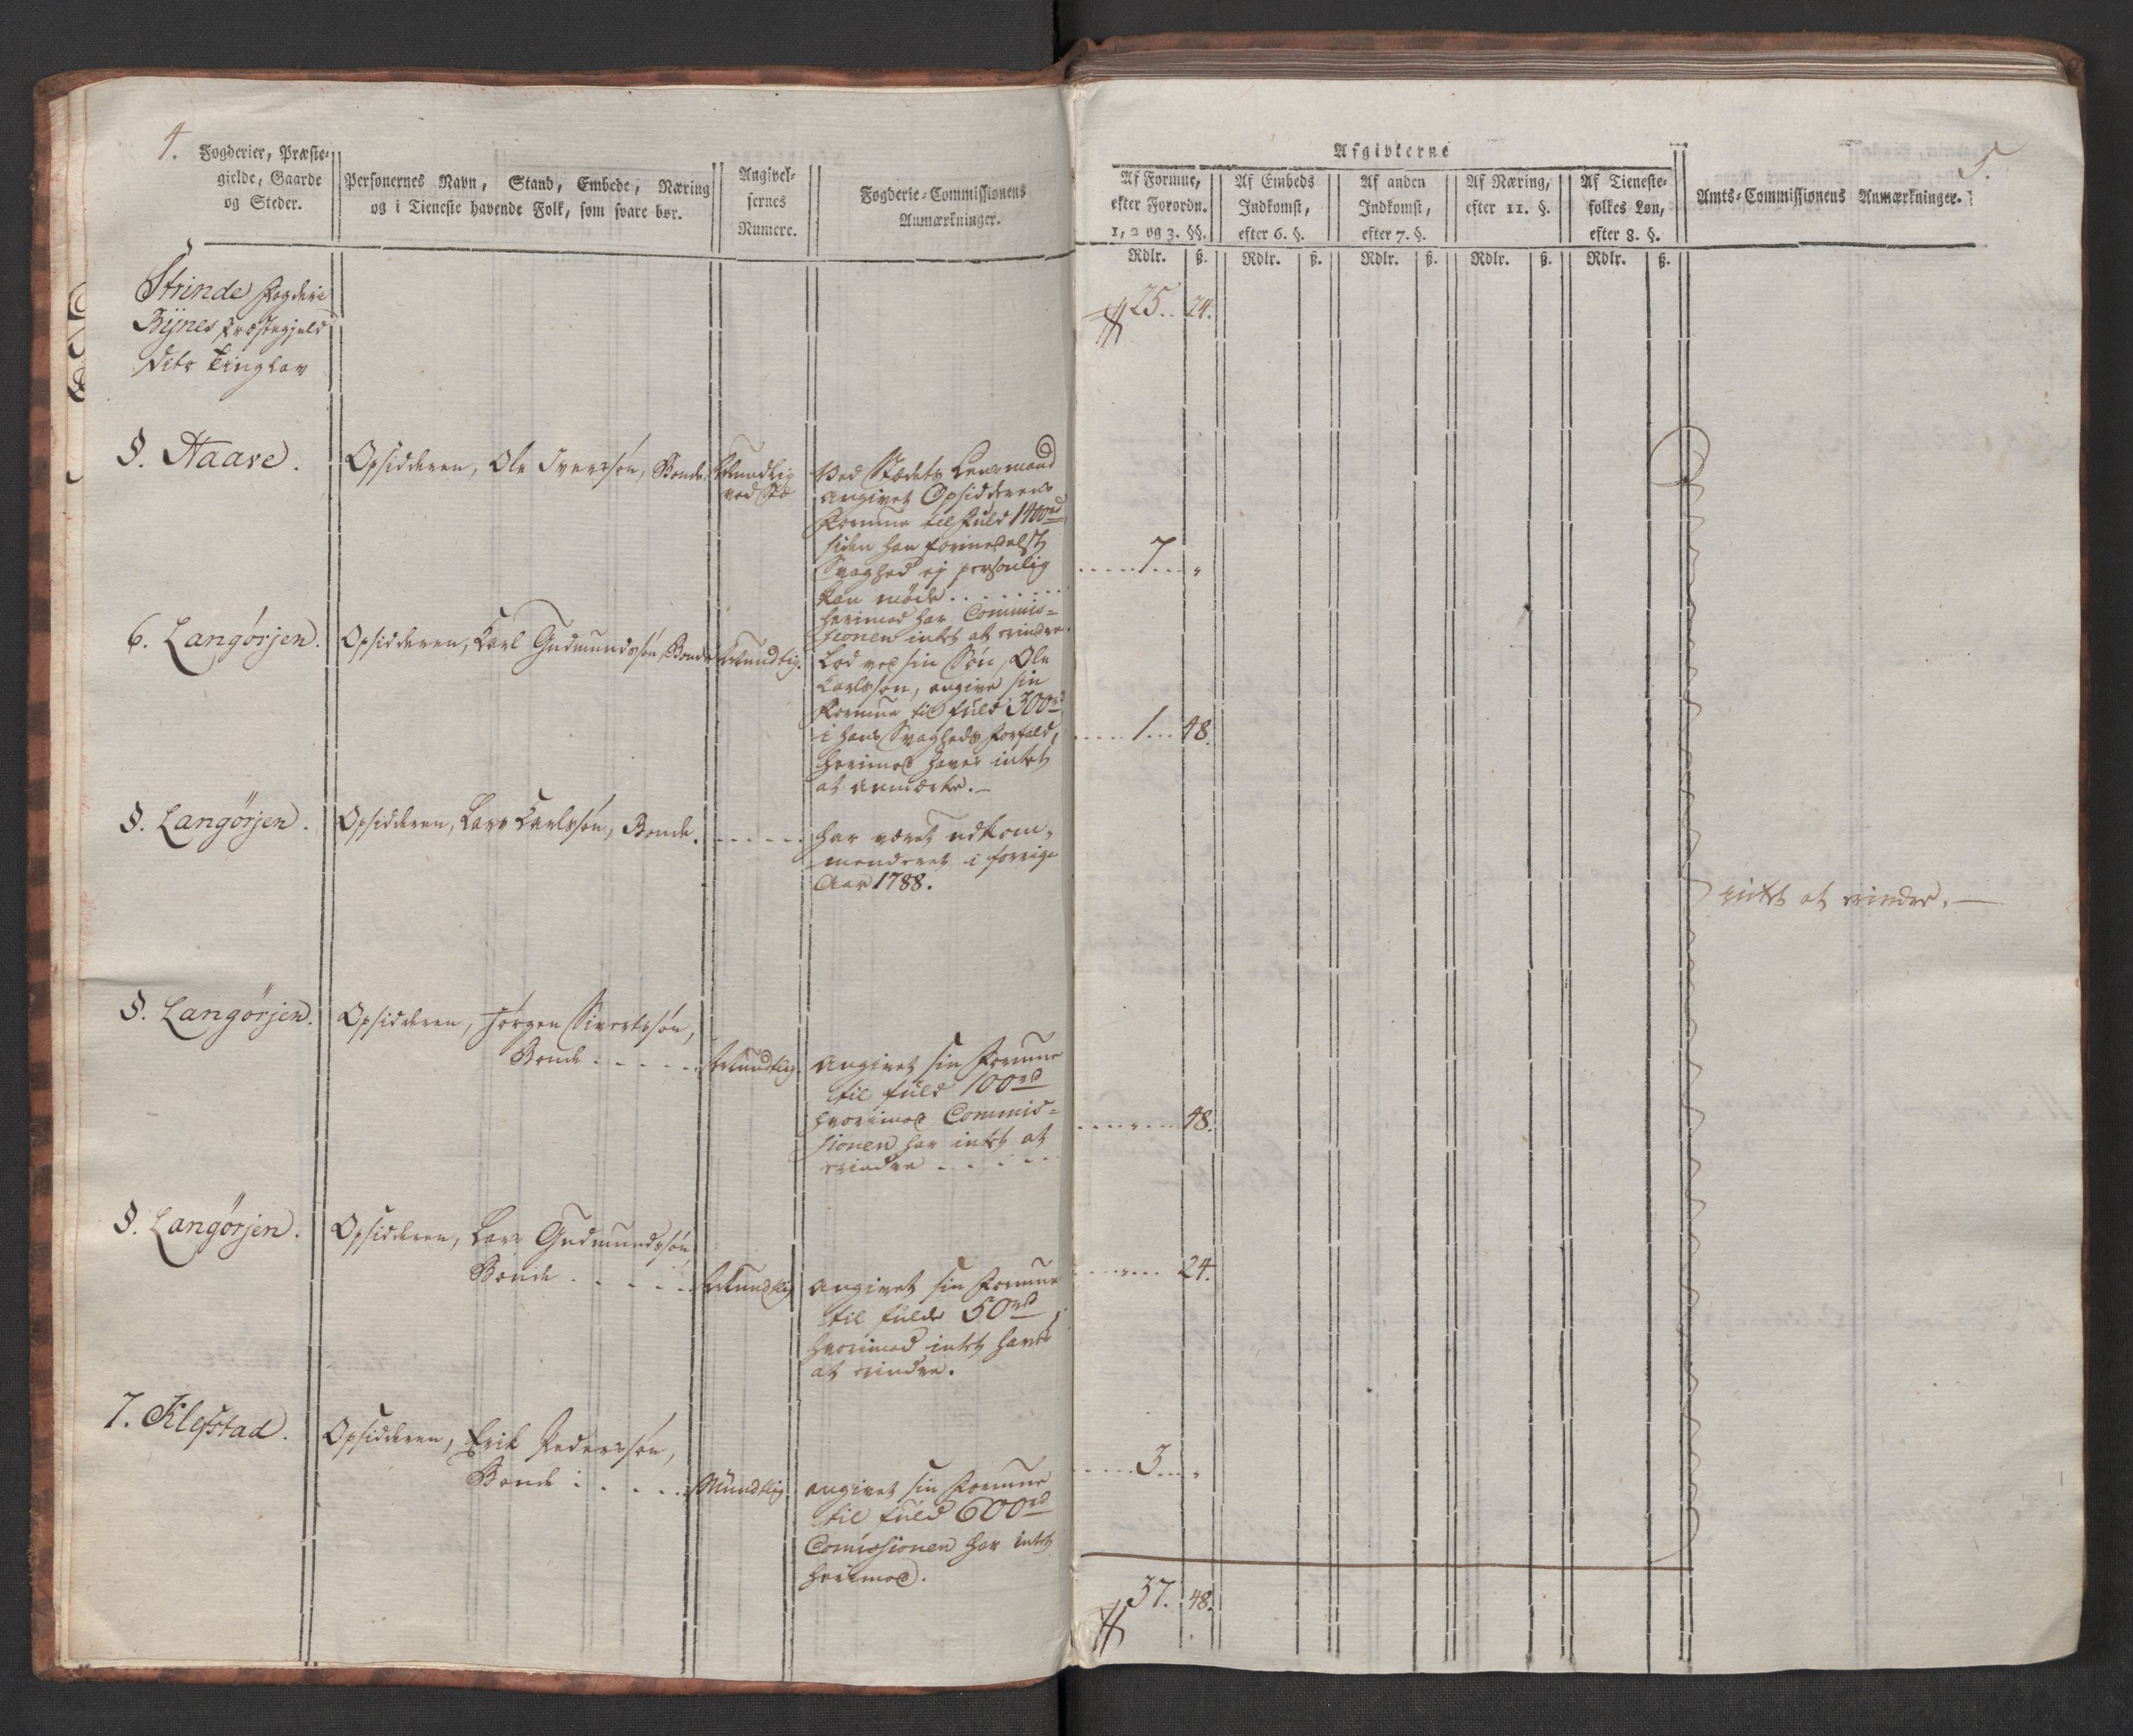 4.
Fogderier, Præste-
gielde, Gaarde
og Steder.
Personernes Navn, Stand, Embede, Næring
og i Tieneste havende Folk, som svare bør.
Angivel-
sernes
Numere.
Fogderie-Commissionens
Anmærkninger.
Strinde Fogderie
Bÿnes Præstegjeld
dito Tinglav
§. Haare.
Opsidderen, Ole Iverssøn, Bonde
Mundtlig
Ved Stedets Lensmand
angivet Opsidderens
Formue til fuld 1400rd
siden han formedelst
Svaghed ej personlig
kan møde . . . . . . . .
herimod har Commis=
sionen intet at erindre.
6. Langörjen.
Opsidderen, Karl Gudmundssøn, Bonde
Mundtlig.
Lod ved sin Søn, Ole
Carlssøn, angive sin
Formue til fuld 300rd
i hans Svagheds Forfald,
herimod haves intet
at anmærke.—
§. Langörjen.
Opsidderen, Lars Karlssøn, Bonde. . . . . .
har været udkom-
menderet i forrige
Aar 1788.
§. Langörjen.
Opsidderen, Jörgen Sivertssøn,
Bonde . . . . .
Mundtlig.
angivet sin Formue
til fuld 100rd
hvorimod Commis=
sionen har intet at
erindre . . . . .
§. Langörjen.
Opsidderen, Lars Gudmundssøn
Bonde . . . . .
Mundtlig
angivet sin Formue
til fulde 50rd,
hvorimod intet haves
at erindre.
7. Klefstad.
Opsidderen, Erik Pederssøn,
Bonde . . . . .
Mündtlig
angivet sin Formue
til fuld 600rd
Comissionen har intet
herimod.
5.
Afgivterne
Af Formue,
efter Forordn.
1, 2 og 3. §§.
Af Embeds
Indkomst,
efter 6. §.
Af anden
Indkomst,
efter 7. §.
Af Næring,
efter 11. §.
Af Tieneste-
folkes Løn,
efter 8. §.
Amts-Commissionens Anmærkninger.
Rdlr. ß. Rdlr. ß. Rdlr. ß. Rdlr. ß. Rdlr. ß.
25. 24.
7 „
1 48.
intet at erindre.—
„ 48.
„ 24.
3 „
37. 48.